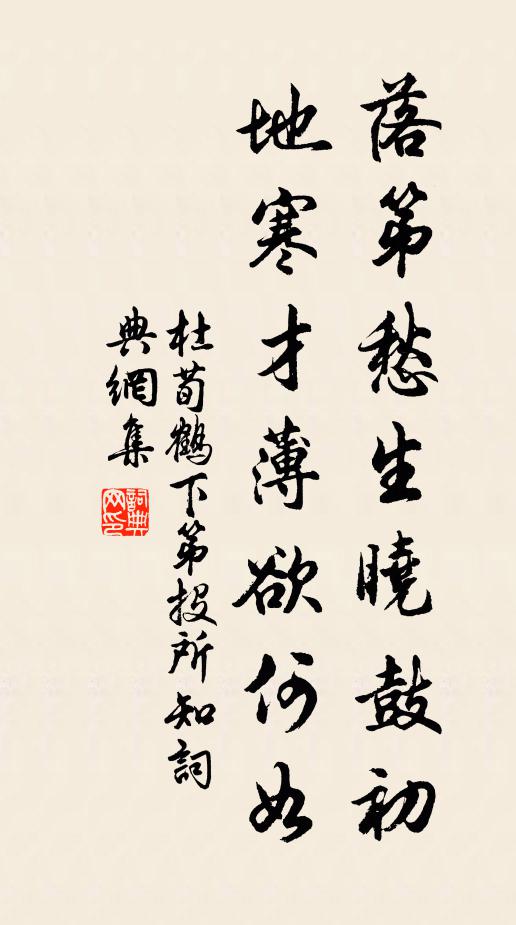 落第愁生曉鼓初
地寒才薄欲何如
杜荀鶴下第投所知詞
典網集
詞典網印